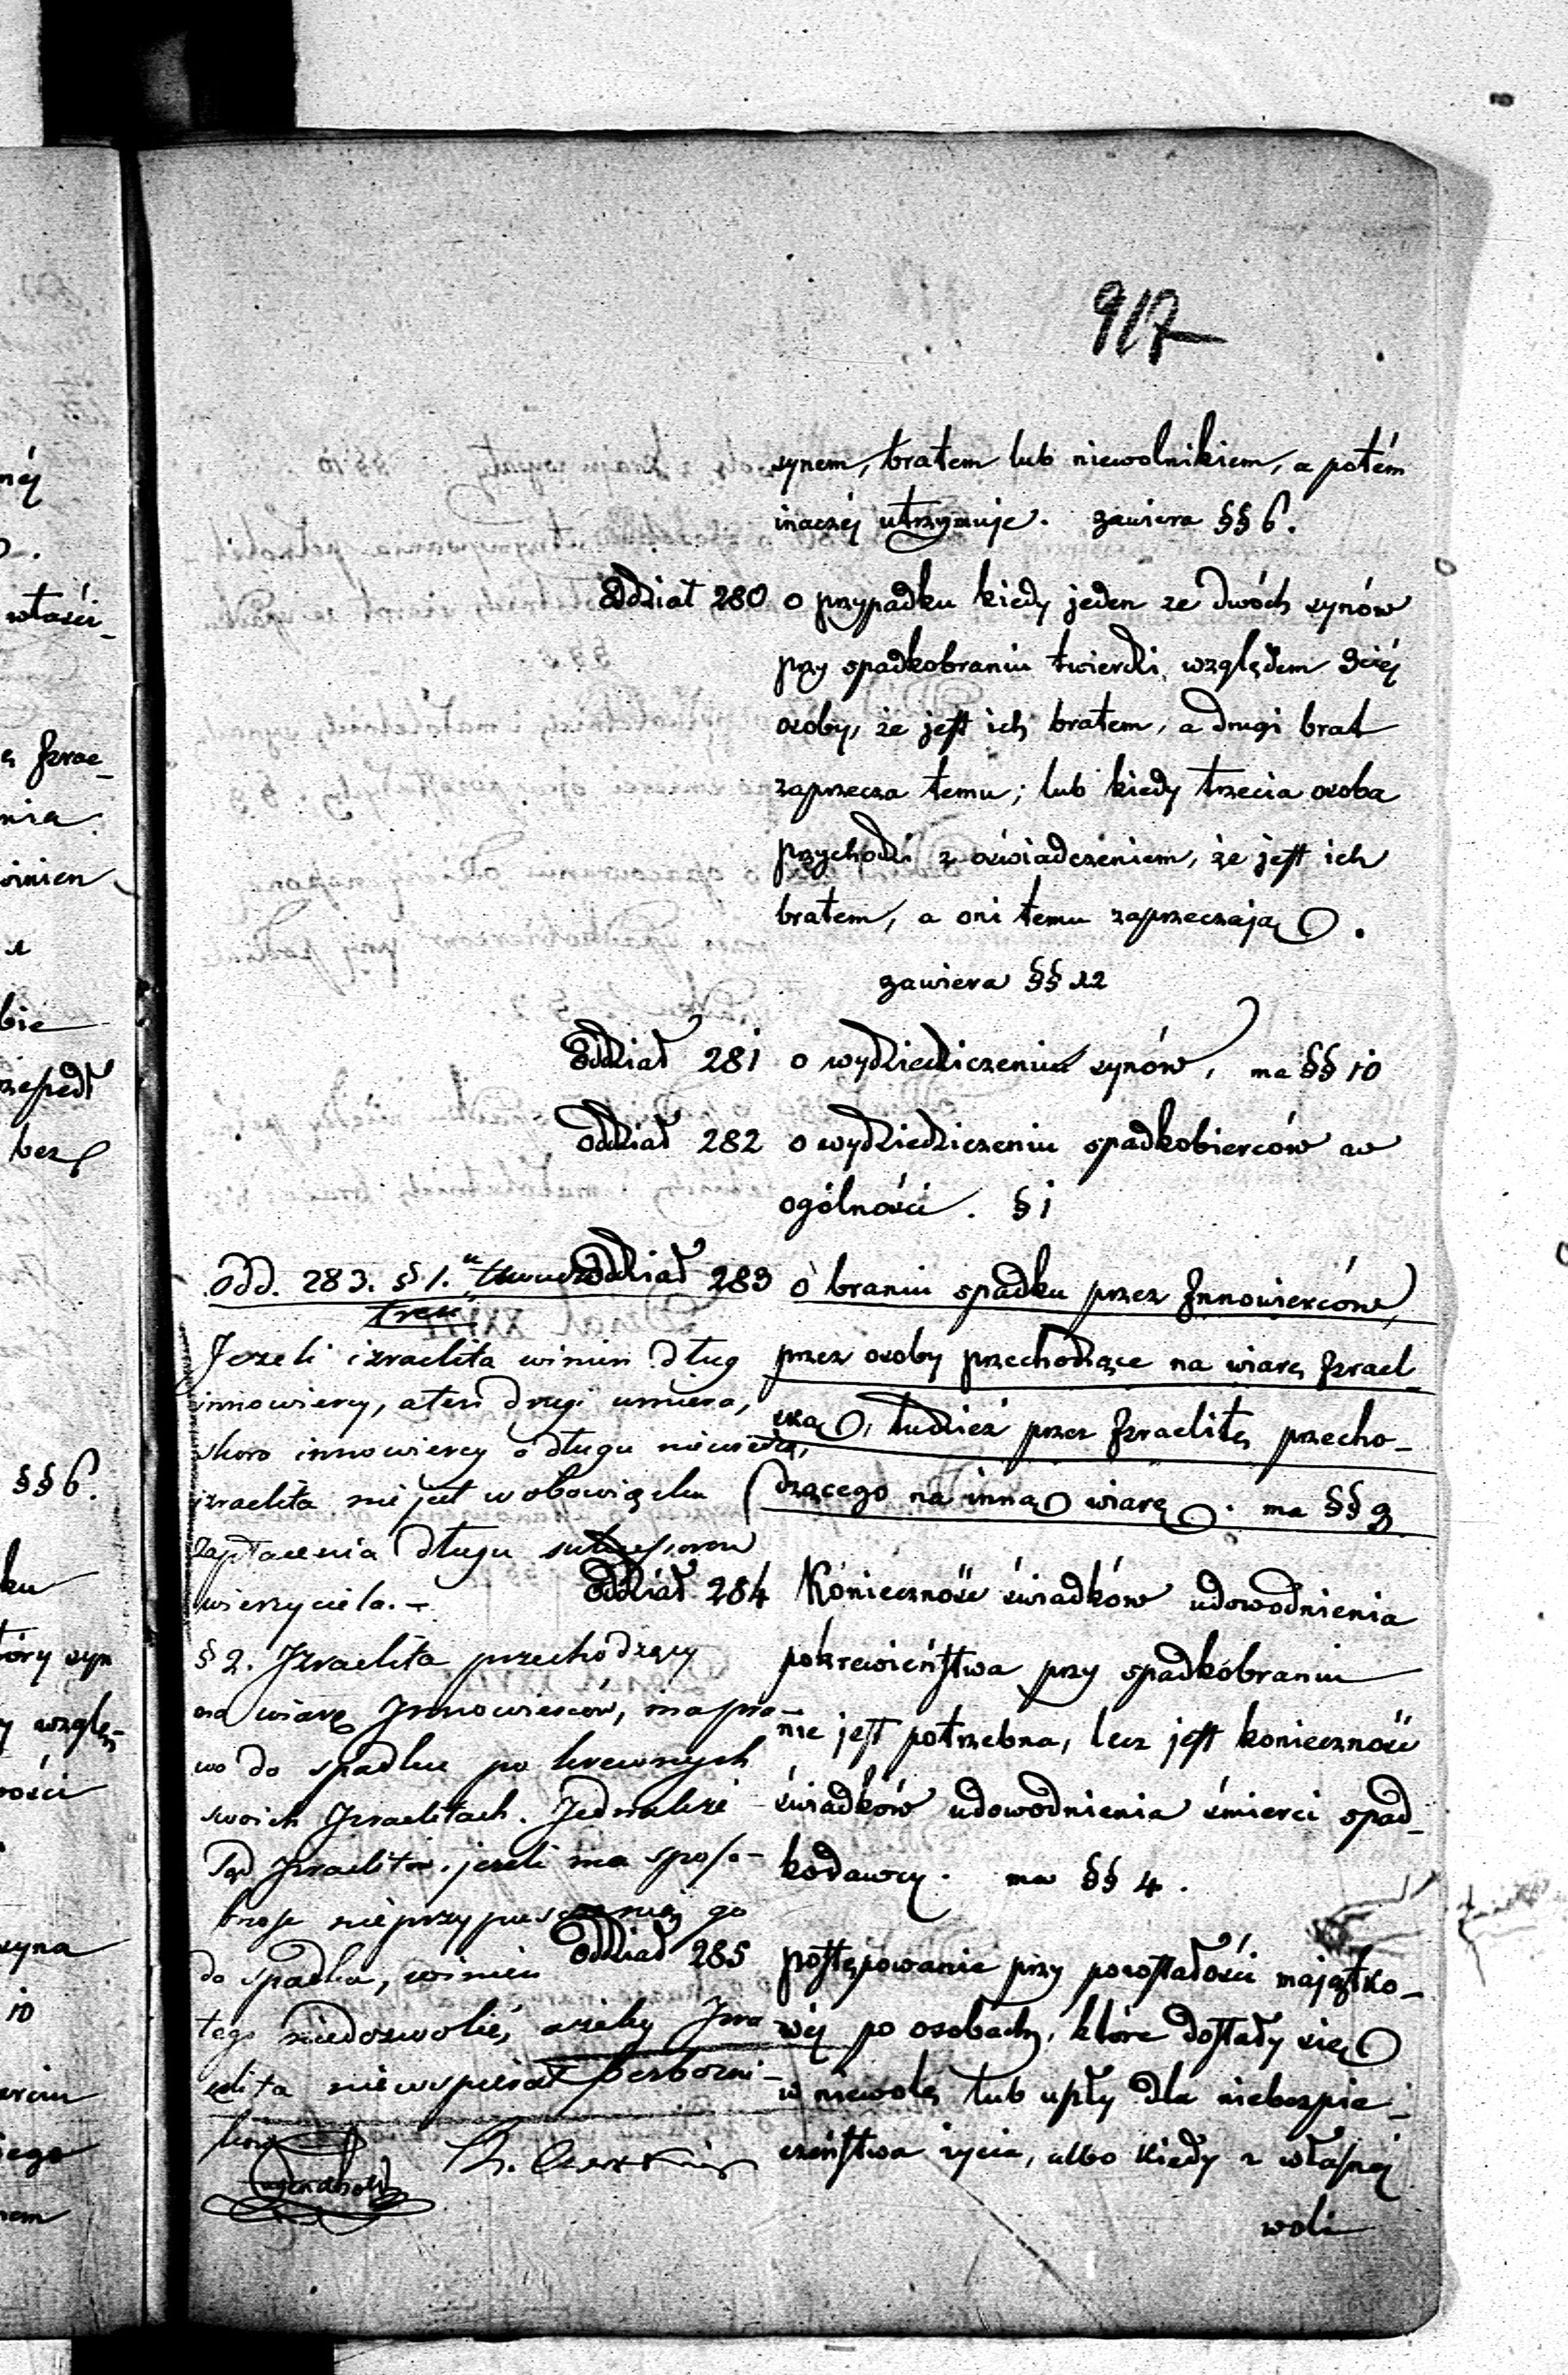 917
synem, bratem lub niewolnikiem, a potém
inaczéj utrzymuje. zawiera §§ 6.
Oddział 280 o przypadku kiedy jeden ze dwóch synów
przy spadkobraniu twierdzi, względem 3ciéj
osoby, że jest ich bratem, a drugi brat
zaprzecza temu; lub kiedy trzecia osoba
przychodzi z oświadczeniem, że jest ich
bratem, a oni temu zaprzeczają.
zawiera §§ 12
Oddział 281 o wydziedziczeniu synów, ma §§ 10
Oddział 282 o wydziedziczeniu spadkobierców w
ogólności. § 1
Oddział 283 o braniu spadku przez Innowierców,
przez osoby przechodzące na wiarę Izrael-
ską, tudzież przez Izraelitę przecho-
dzącego na inną wiarę. ma §§ 9
Oddział 284 Konieczność świadków udowodnienia
pokrewieństwa przy spadkobraniu
nie jest potrzebna, lecz jest konieczność
świadków udowodnienia śmierci spad-
kodawcy. ma §§ 4.
Oddział 285 postępowanie przy pozostałości majątko-
wéj po osobach, które dostały się
w niewolę lub uszły dla niebezpie-
czeństwa życia, albo kiedy z własnéj
woli
odd. 283. § 1.
treść
Jeżeli izraelita winien dług
innowiercy, a ten drugi umiera,
skoro innowiercy o długu niewiedzą,
izraelita nie jest w obowiązku
zapłacenia długu sukcessorom
wierzyciela. -
§ 2. Izraelita przechodzący
na wiarę Innowierców, ma pra-
wo do spadku po krewnych
swoich Izraelitach. Jednakże
Sąd Izraelitów jeżeli ma sposo-
bność nieprzypuszczenia go
do spadku, winien
tego niedozwolić, ażeby Izra-
elita niewspierał bezbożni-
ków